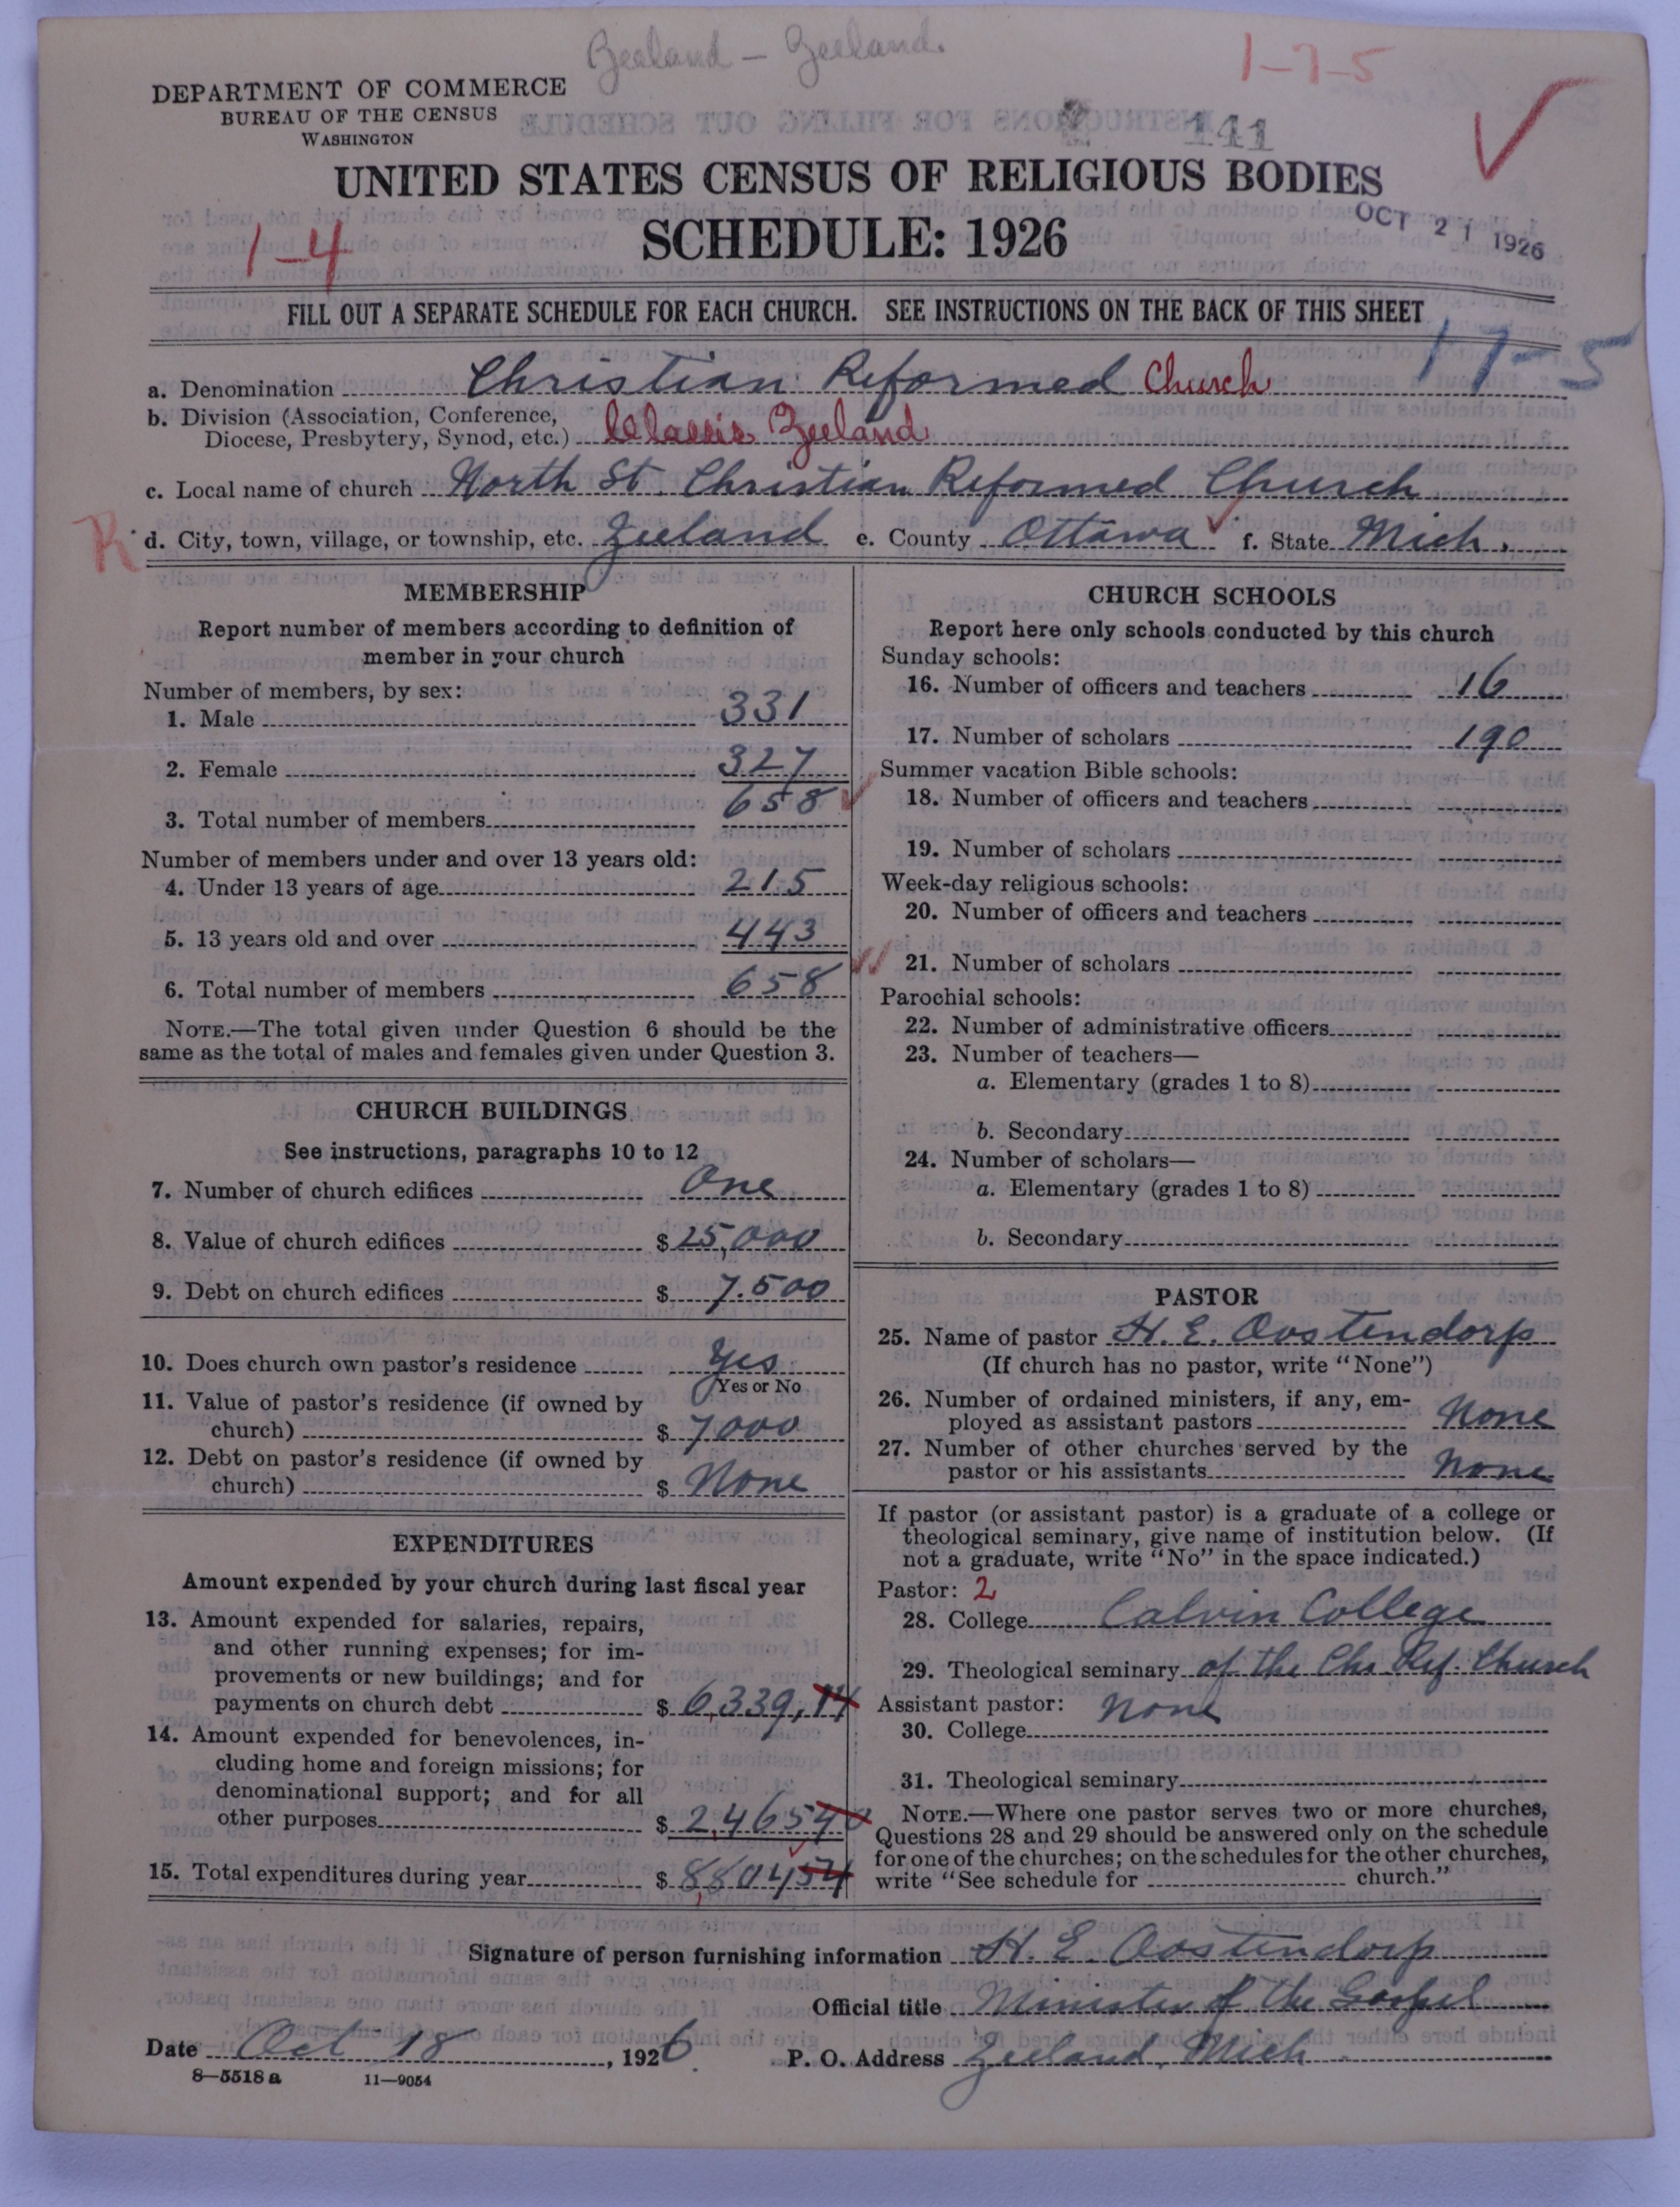 Zeeland – Zeeland.
1-7-5
DEPARTMENT OF COMMERCE
BUREAU OF THE CENSUS
WASHINGTON
141
UNITED STATES CENSUS OF RELIGIOUS BODIES
SCHEDULE: 1926
OCT 21 1926
1-4
FILL OUT A SEPARATE SCHEDULE FOR EACH CHURCH. SEE INSTRUCTIONS ON THE BACK OF THIS SHEET
17-5
a. Denomination Christian Reformed Church
b. Division (Association, Conference,
Diocese, Presbytery, Synod, etc.) Classis Zeeland
c. Local name of church North St. Christian Reformed Church
R
d. City, town, village, or township, etc. Zeeland e. County Ottawa f. State Mich.
MEMBERSHIP
Report number of members according to definition of
member in your church
Number of members, by sex:
1. Male 331
2. Female 327
3. Total number of members 658
Number of members under and over 13 years old:
4. Under 13 years of age 215
5. 13 years old and over 443
6. Total number of members 658
NOTE.—The total given under Question 6 should be the
same as the total of males and females given under Question 3.
CHURCH BUILDINGS
See instructions, paragraphs 10 to 12
7. Number of church edifices One
8. Value of church edifices $ 25,000
9. Debt on church edifices $ 7.500
10. Does church own pastor's residence Yes
Yes or No
11. Value of pastor's residence (if owned by
church) $ 7000
12. Debt on pastor's residence (if owned by
church) $ None
EXPENDITURES
Amount expended by your church during last fiscal year
13. Amount expended for salaries, repairs,
and other running expenses; for im-
provements or new buildings; and for
payments on church debt $ 6,339,14
14. Amount expended for benevolences, in-
cluding home and foreign missions; for
denominational support; and for all
other purposes $ 2,46540
15. Total expenditures during year $ 8,80454
CHURCH SCHOOLS
Report here only schools conducted by this church
Sunday schools:
16. Number of officers and teachers 16
17. Number of scholars 190
Summer vacation Bible schools:
18. Number of officers and teachers
19. Number of scholars
Week-day religious schools:
20. Number of officers and teachers
21. Number of scholars
Parochial schools:
22. Number of administrative officers
23. Number of teachers—
a. Elementary (grades 1 to 8)
b. Secondary
24. Number of scholars—
a. Elementary (grades 1 to 8)
b. Secondary
PASTOR
25. Name of pastor H. E. Oostendorp
(If church has no pastor, write "None")
26. Number of ordained ministers, if any, em-
ployed as assistant pastors None
27. Number of other churches served by the
pastor or his assistants None
If pastor (or assistant pastor) is a graduate of a college or
theological seminary, give name of institution below. (If
not a graduate, write "No" in the space indicated.)
Pastor: 2
28. College Calvin College
29. Theological seminary of the Chr Ref. Church
Assistant pastor: None
30. College
31. Theological seminary
NOTE.—Where one pastor serves two or more churches,
Questions 28 and 29 should be answered only on the schedule
for one of the churches; on the schedules for the other churches,
write "See schedule for church."
Signature of person furnishing information H. E. Oostendorp
Official title Minister of the Gospel
Date Oct 18, 1926 P. O. Address Zeeland, Mich
8—5518 a 11—9054